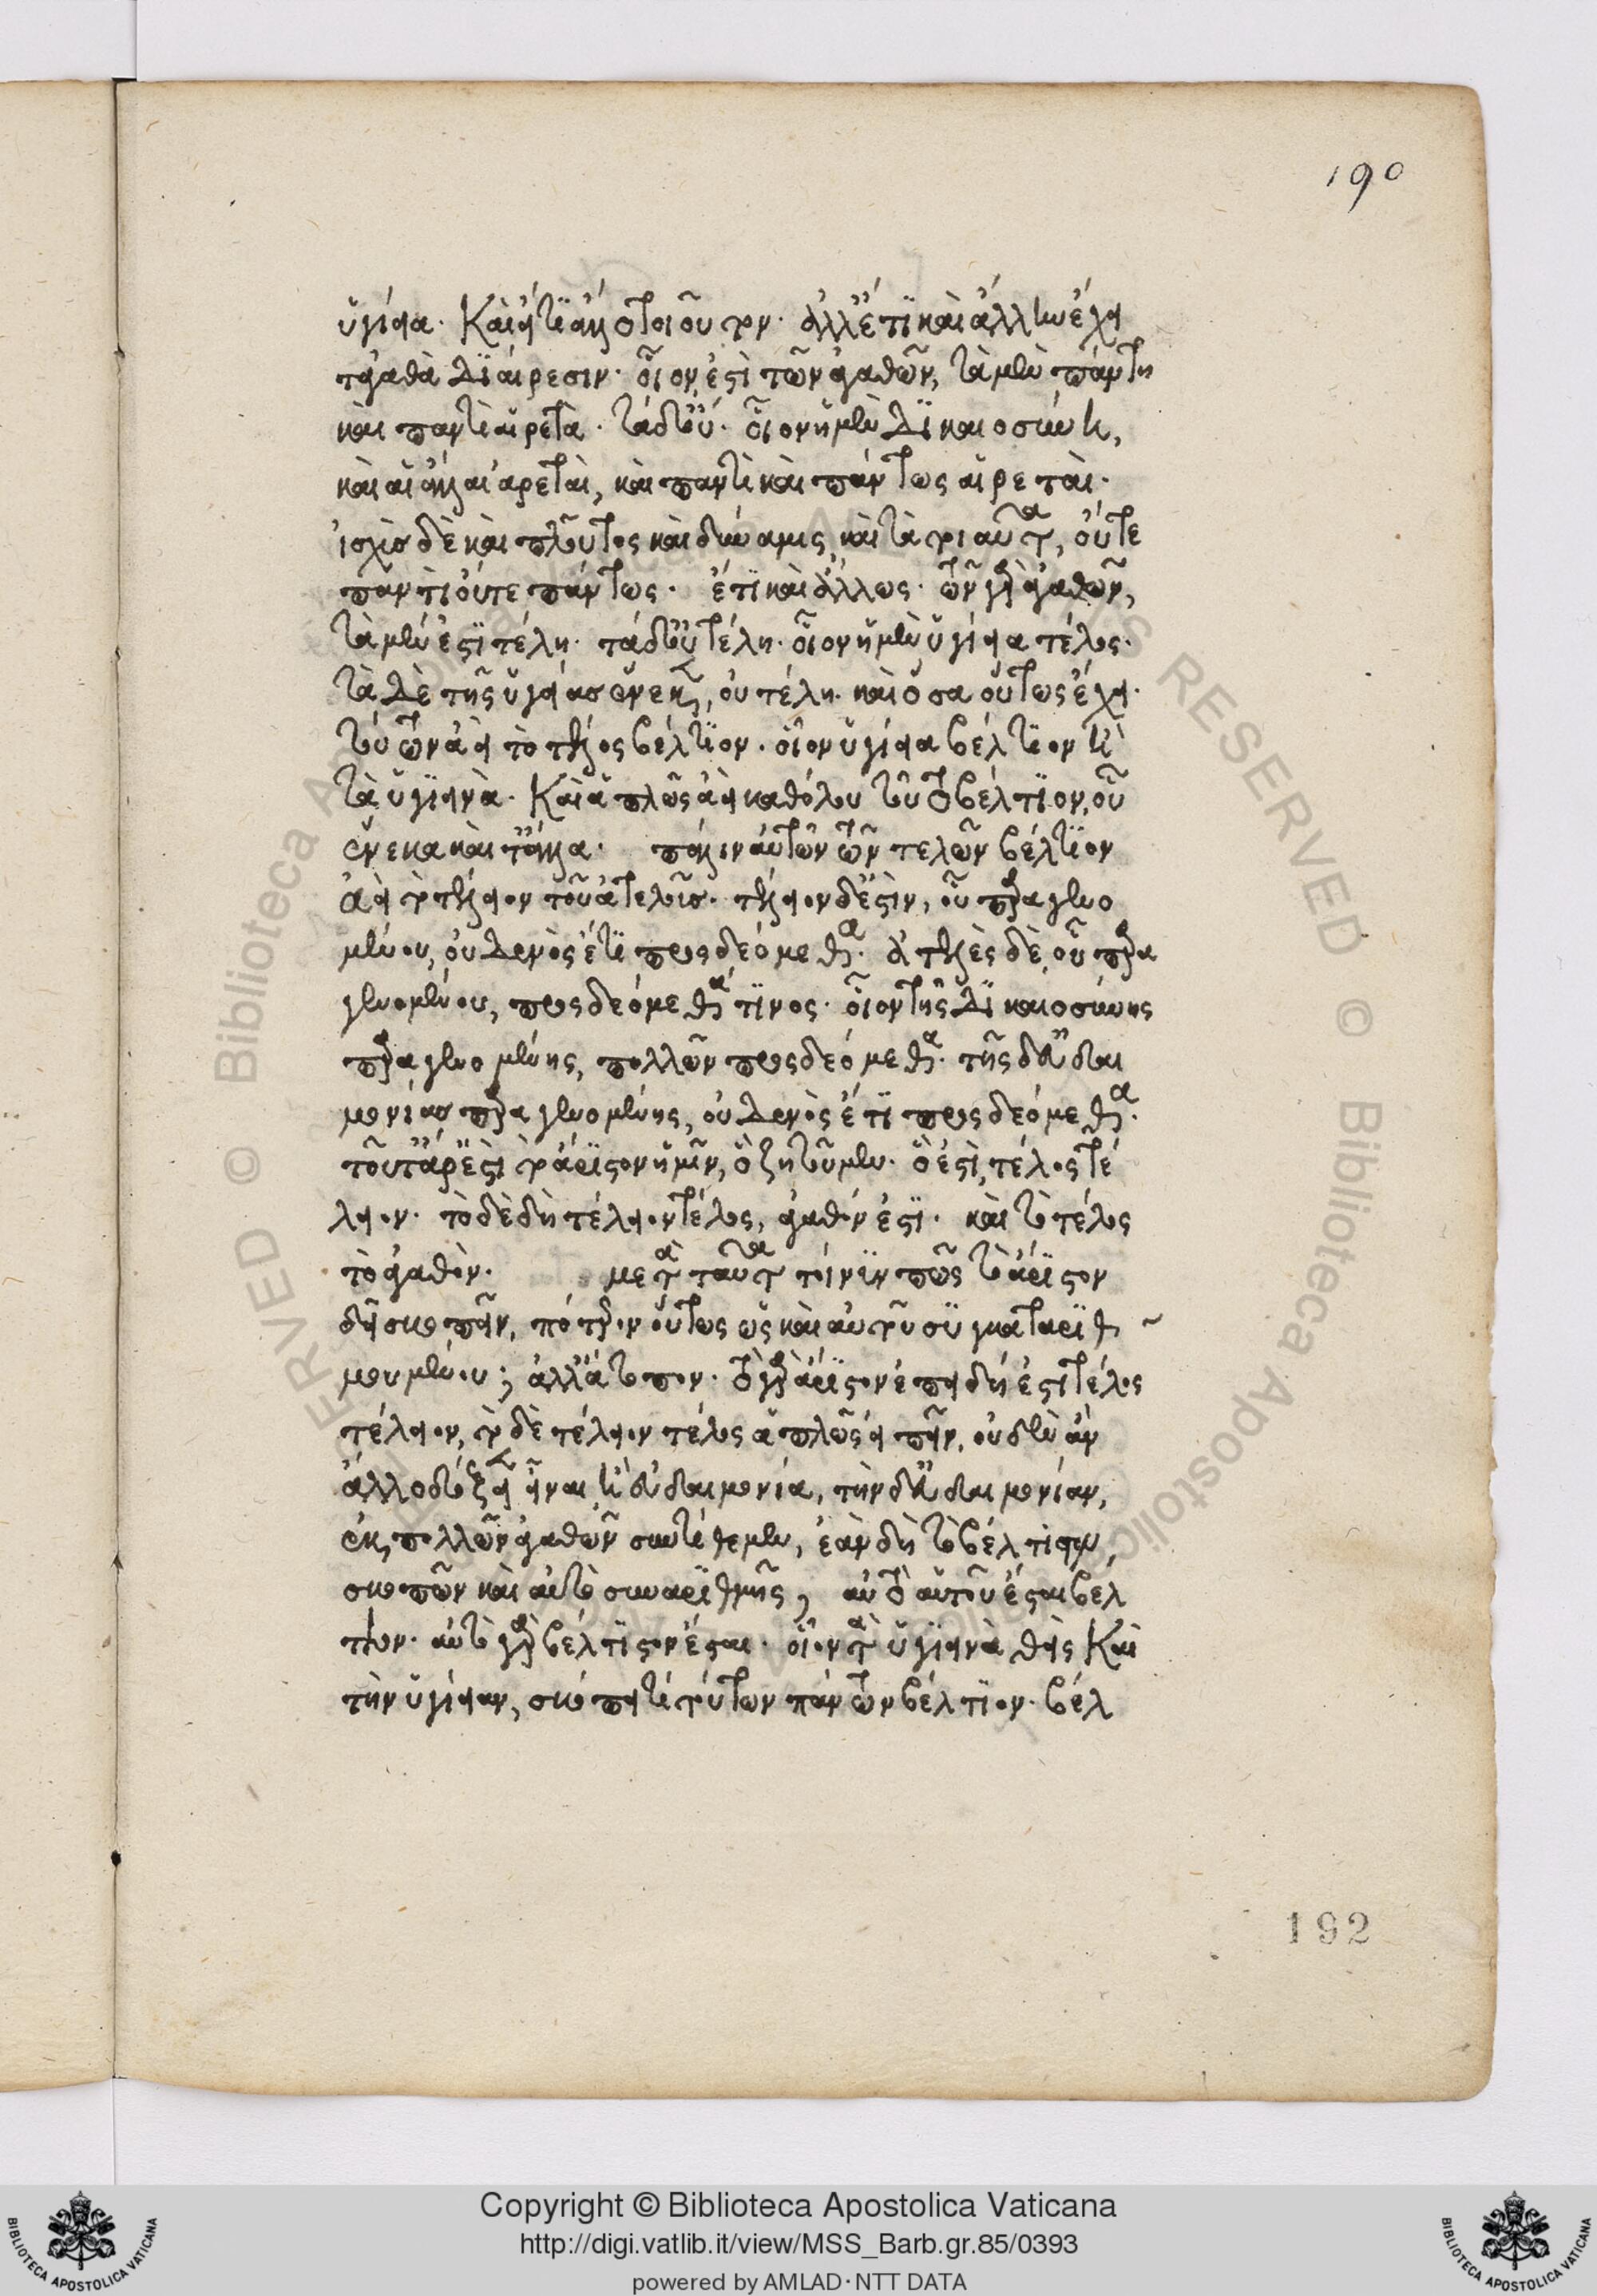 190
ὑγίεια· Καὶ εἴ τι ἄλλο τοιοῦτον· ἀλλ' ἔτι καὶ ἄλλην ἔχει
τἀγαθὰ διαίρεσιν· οἷον ἐστὶ τῶν ἀγαθῶν, τὰ μὲν πάντη
καὶ παντὶ αἱρετὰ· τὰ δ' οὔ· οἷον ἡ μὲν δικαιοσύνη,
καὶ αἱ ἄλλαι ἀρεταὶ, καὶ παντὶ καὶ πάντως αἱρεταὶ·
ἰσχὺς δὲ καὶ πλοῦτος καὶ δύναμις καὶ τὰ τοιαῦτα, οὔτε
παντὶ οὔτε πάντως· ἔτι καὶ ἄλλως· τῶν γὰρ ἀγαθῶν,
τὰ μέν ἐστι τέλη· τὰ δ' οὐ τέλη· οἷον ἡ μὲν ὑγίεια τέλος·
τὰ δὲ τῆς ὑγιείας ἕνεκα, οὐ τέλη· καὶ ὅσα οὕτως ἔχει·
τούτων ἀεὶ τὸ τέλος βέλτιον· οἷον ὑγίεια βέλτιον ἢ
τὰ ὑγιεινὰ· Καὶ ἁπλῶς ἀεὶ καθόλου τοῦτο βέλτιον, οὗ
ἕνεκα καὶ τἄλλα· πάλιν αὐτῶν τῶν τελῶν βέλτιον
ἀεὶ τὸ τέλειον τοῦ ἀτελοῦς· τέλειον δέ ἐστιν, οὗ παραγενο
μένου, οὐδενὸς ἔτι προσδεόμεθα· ἀτελὲς δὲ, οὗ παρα
γενομένου, προσδεόμεθά τινος· οἷον τῆς δικαιοσύνης
παραγενομένης, πολλῶν προσδεόμεθα· τῆς δ' εὐδαι
μονίας παραγενομένης, οὐδενὸς ἔτι προσδεόμεθα·
τοῦτ' ἄρ' ἐστὶ τὸ ἄριστον ἡμῖν, ὃ ζητοῦμεν· ὅ ἐστι, τέλος τέ
λειον· τὸ δὲ δὴ τέλειον τέλος, ἀγαθόν ἐστι· καὶ τὸ τέλος
τὸ ἀγαθὸν· μετὰ ταῦτα τοίνυν πῶς τὸ ἄριστον
δεῖ σκοπεῖν, πότερον οὕτως ὡς καὶ αὐτοῦ συγκαταριθ
μουμένου; ἀλλ' ἄτοπον· τὸ γὰρ ἄριστον ἐπειδή ἐστι τέλος
τέλειον, τὸ δὲ τέλειον τέλος ἁπλῶς εἰπεῖν, οὐδὲν ἂν
ἄλλο δόξειεν εἶναι ἢ εὐδαιμονία, τὴν δ' εὐδαιμονίαν,
ἐκ πολλῶν ἀγαθῶν συντίθεμεν, ἐὰν δὴ τὸ βέλτιστον
σκοπῶν καὶ αὐτὸ συναριθμῇς, αὐτὸ αὑτοῦ ἔσται βέλ
τιον· αὐτὸ γὰρ βέλτιστον ἔσται· οἷον τὰ ὑγιεινὰ θεὶς Καὶ
τὴν ὑγίειαν, σκόπει τί τούτων πάντων βέλτιον· βέλ
192
© Biblioteca Apostolica Vaticana
Copyright © Biblioteca Apostolica Vaticana
http://digi.vatlib.it/view/MSS_Barb.gr.85/0393
powered by AMLAD·NTT DATA
BIBLIOTECA APOSTOLICA VATICANA
BIBLIOTECA APOSTOLICA VATICANA